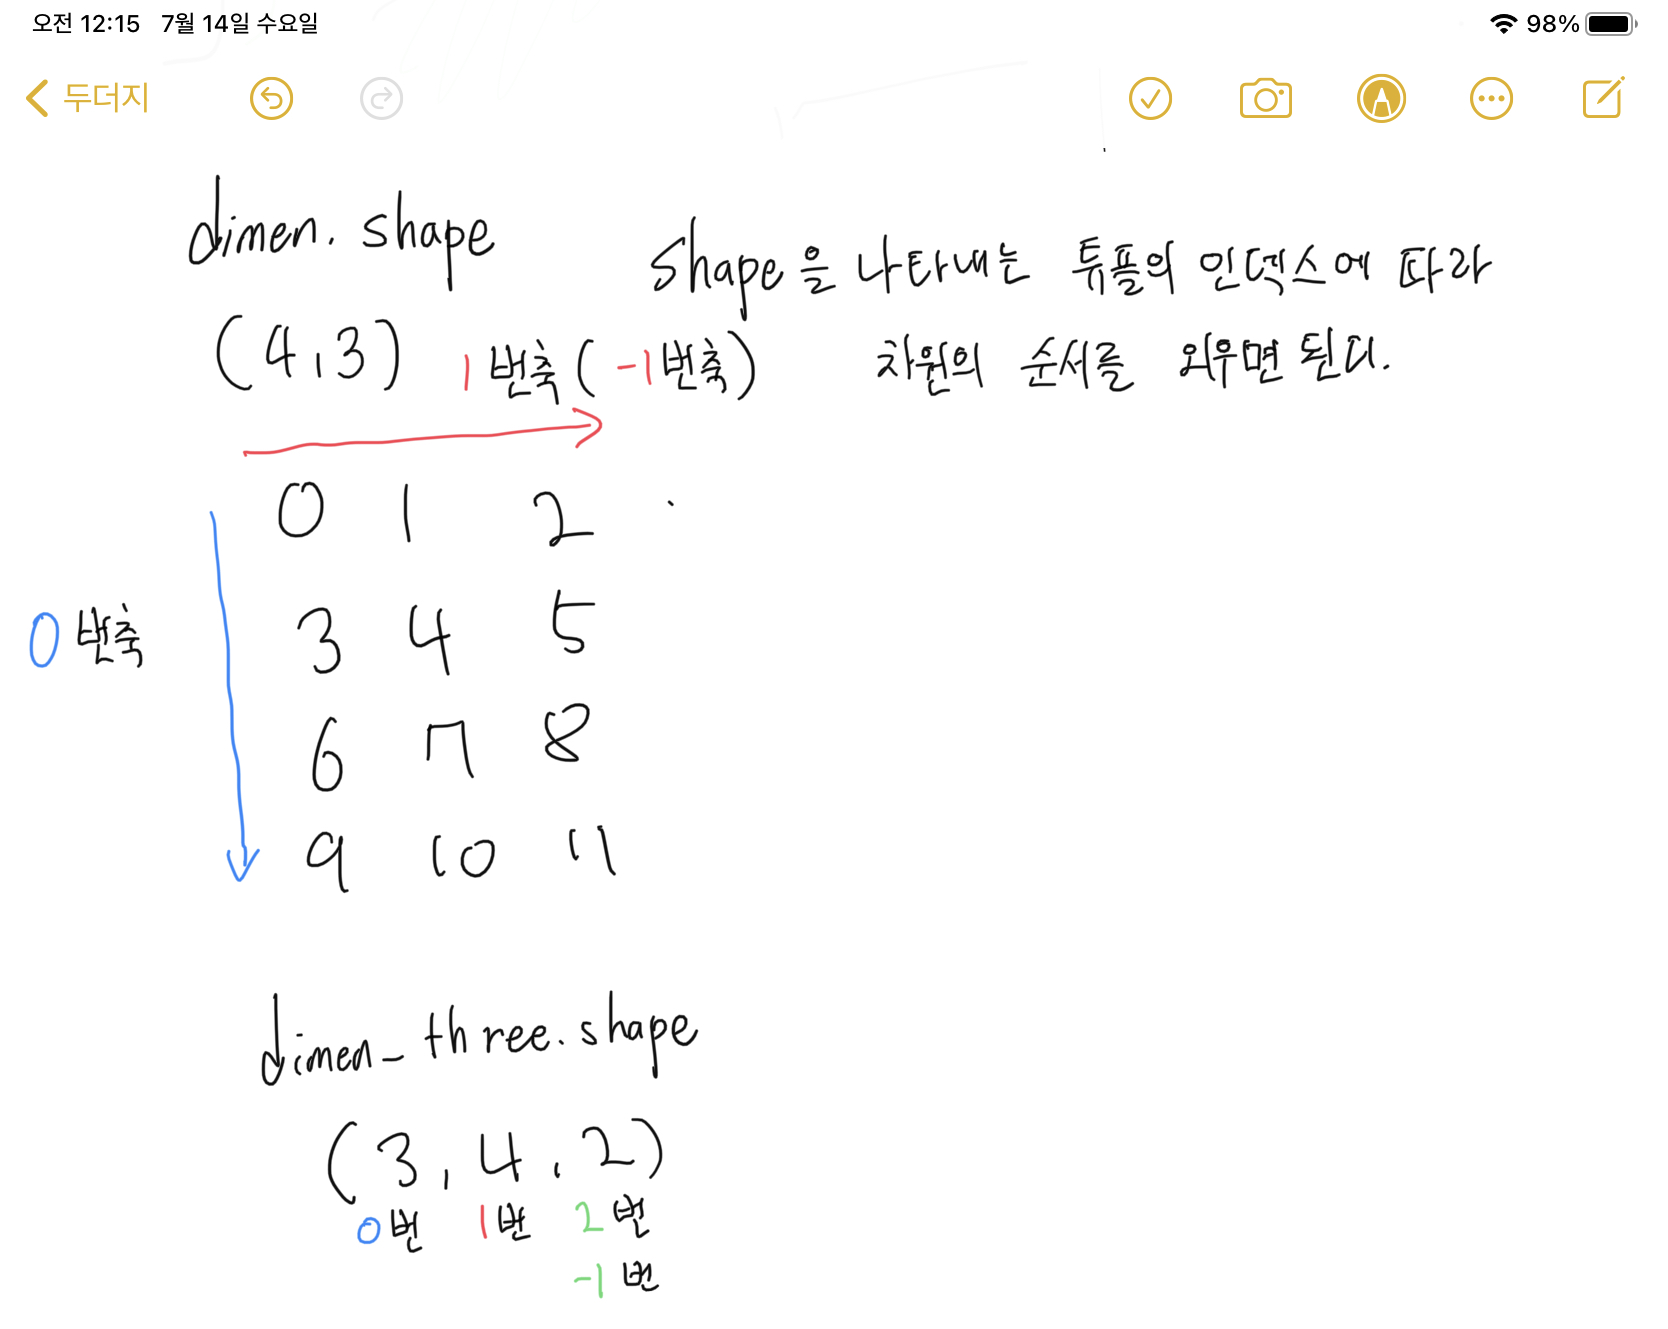 오전 12:15 7월 14일 수요일 98%
두더지
dimen. shape
shape을 나타내는 튜플의 인덱스에 따라
차원의 순서를 외우면 된다.
(4,3)
1번축(-1번축)
0 1 2
3 4 5
0번축
6 7 8
9 10 11
dimen_three.shape
(3, 4, 2)
0번 1번 2번
-1번